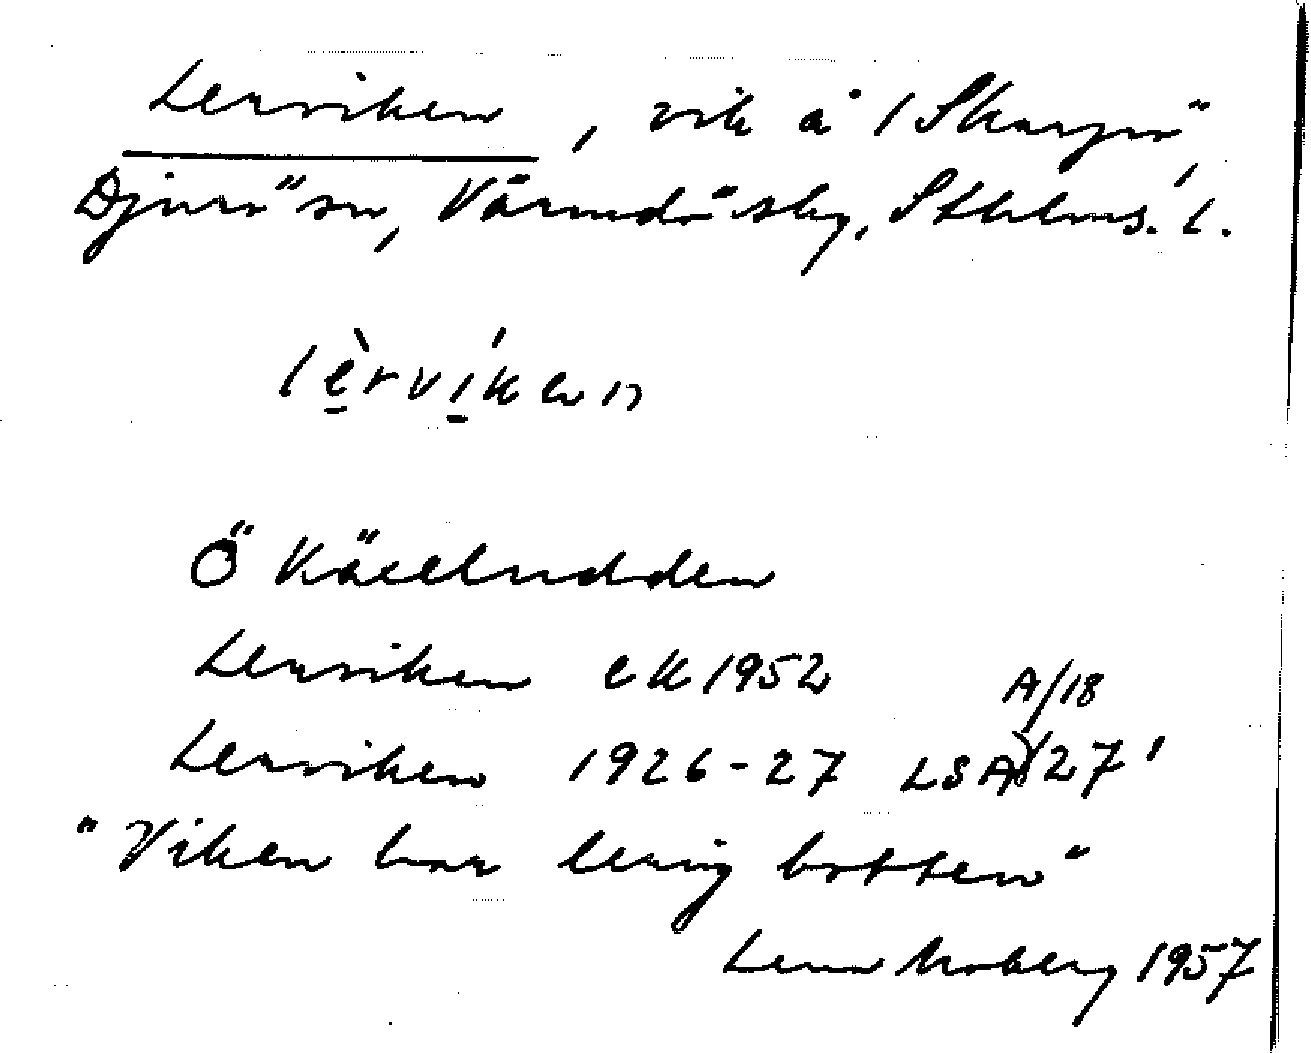 Lerviken, vik å l Skarpö,
Djurö sn, Värmdö sky. Sthlms. l.
lèrvíken
Ö Källudden
Lerviken eK 1952
A/18
Lerviken 1926-27 LSA 27'
"Viken har lerig botten"
Lena Moberg 1957